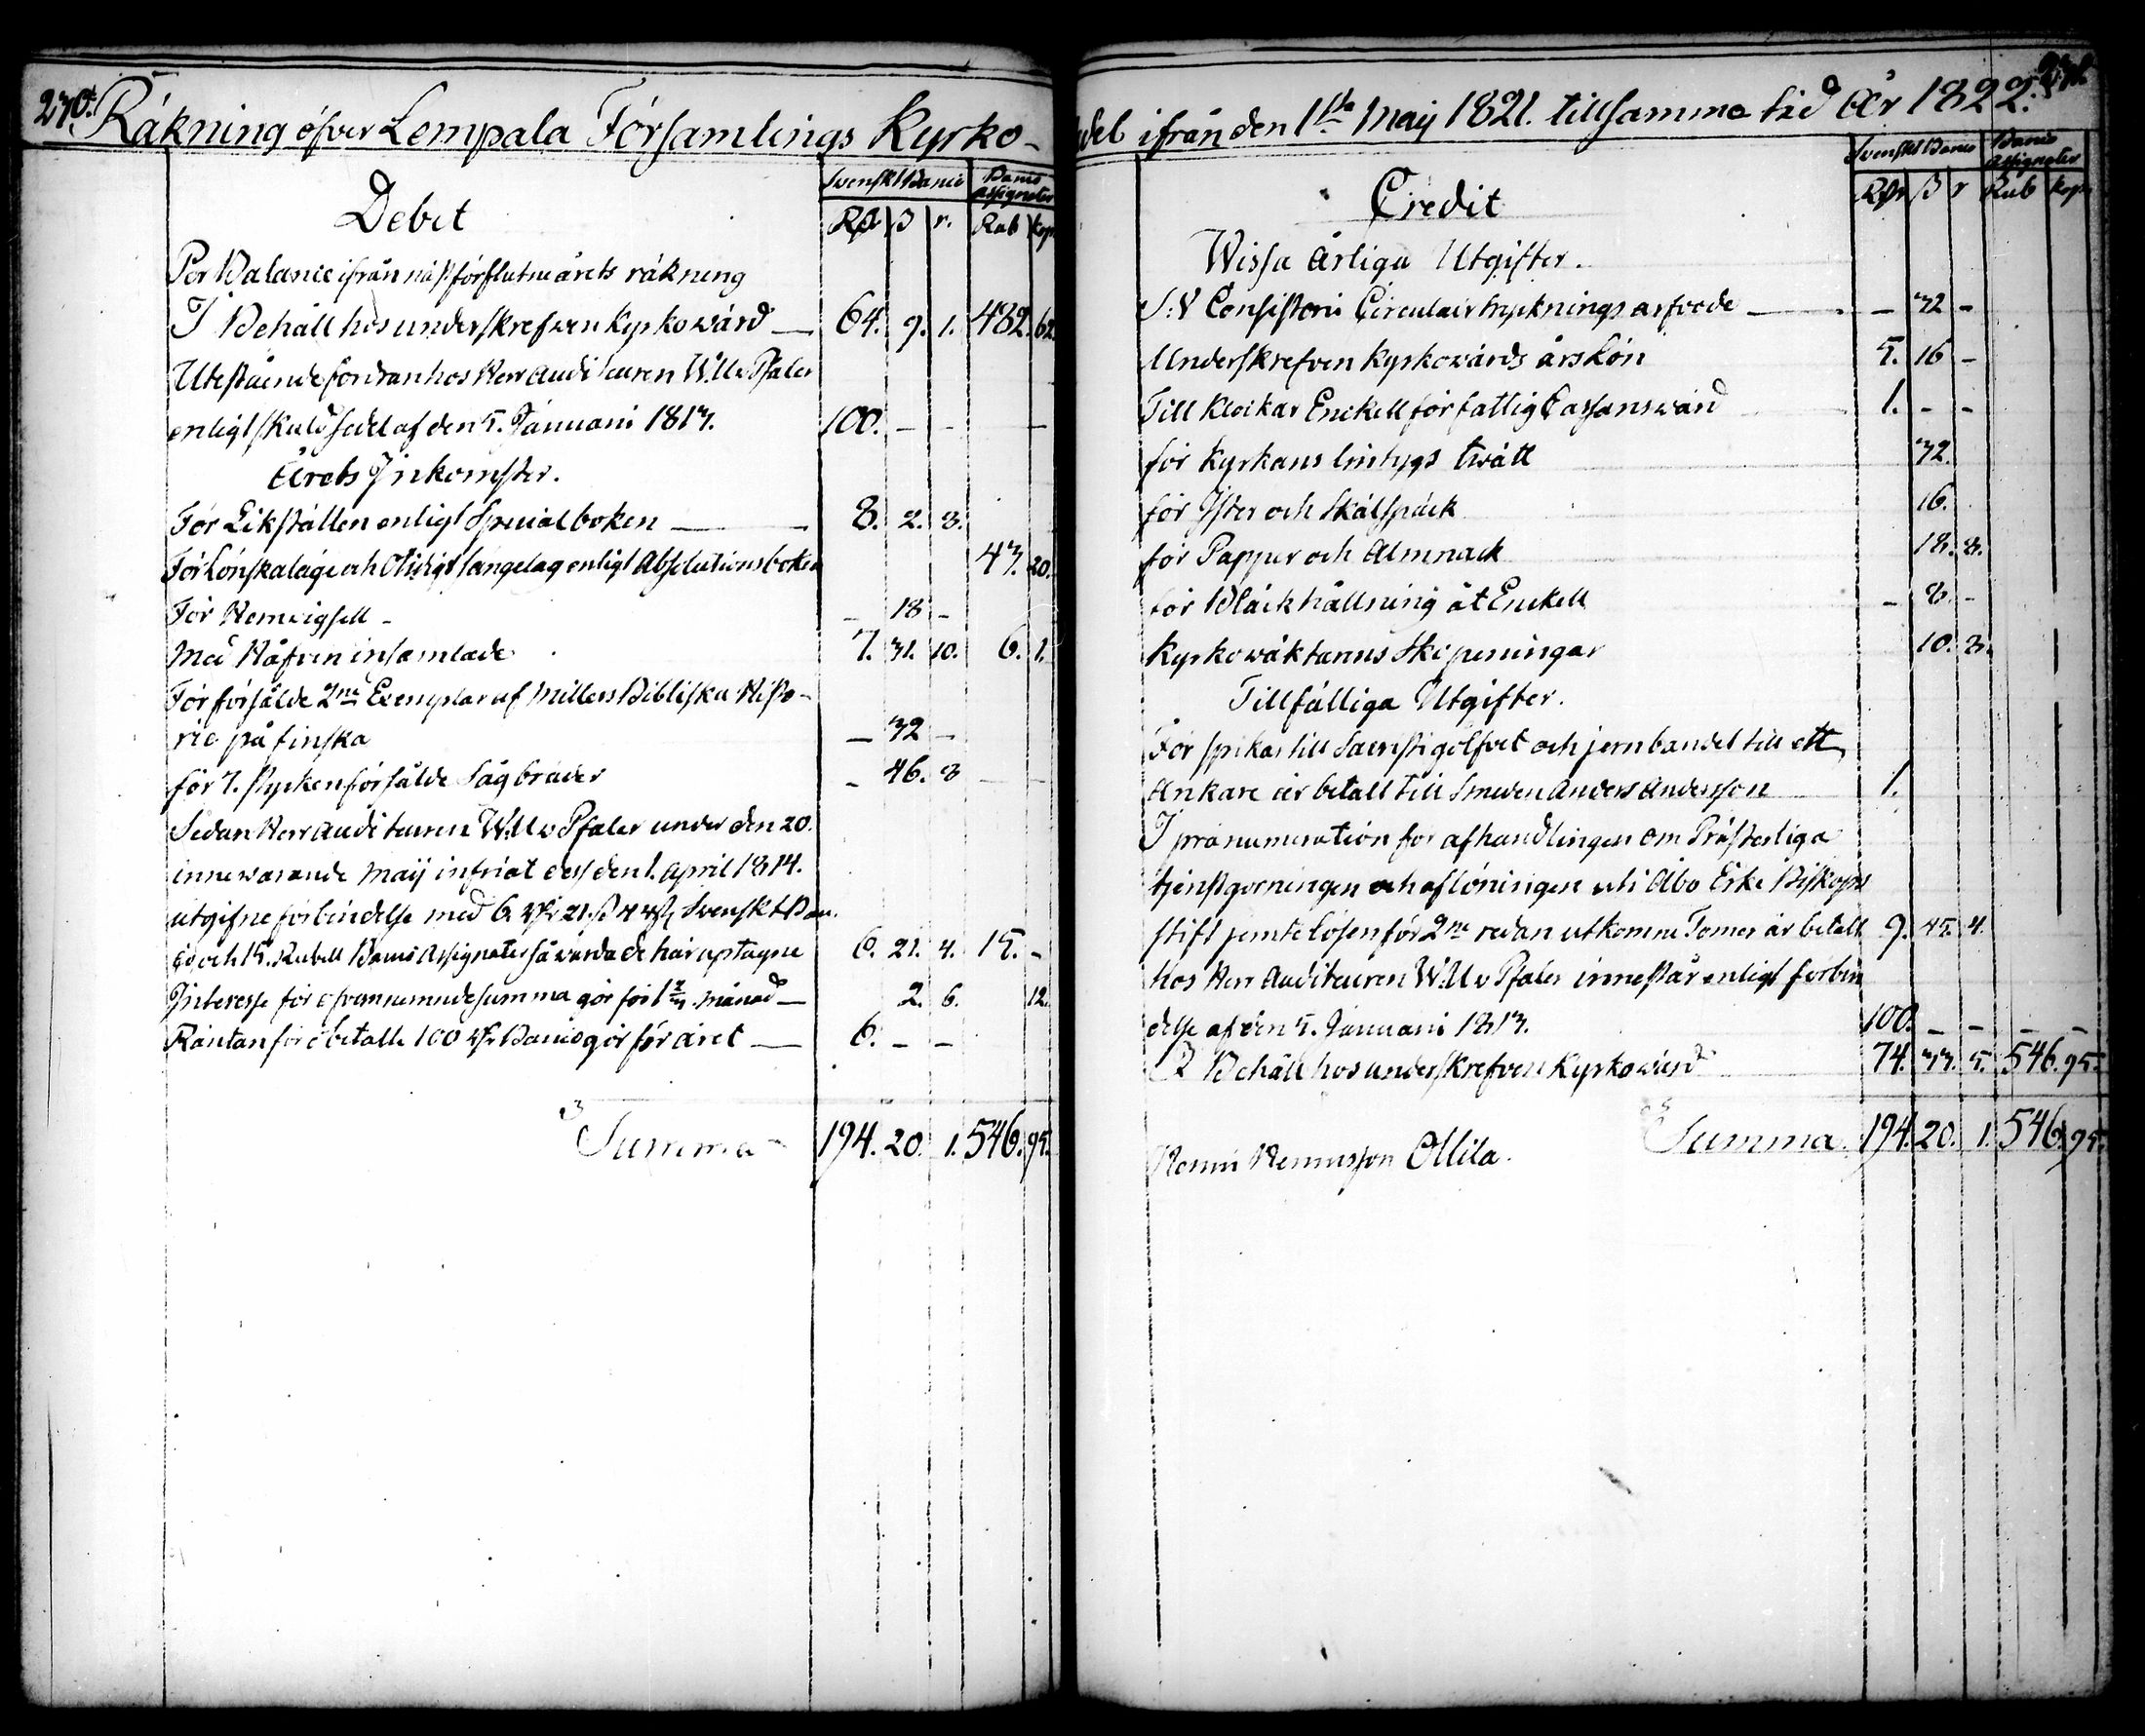 270.
Räkning öfver Lempala Församlings Kyrko-
Svenskt Banco Banco Assignater
Debet Rdr ß r. Rub kop
Per Balance ifrån näst förflutne årets räkning
I Behåll hos underskrefwen Kyrkowärd — 64. 9. 1. 482. 62.
Utestående fordran hos Herr Auditeuren W. U v Pfaler
enligt skuldsedel af den 5. Januarii 1817. 100. - - -
Årets Inkomster.
För Likställen enligt Specialboken — 8. 2. 8.
För Lönskaläge och Otidigt sängelag enligt Absolutionsboken 47. 20.
För Hemvigsell - - 18 -
Med Håfven insamlade 7. 31. 10. 6. 1.
För försålde 2ne Exemplar af Millers Bibliska Histo-
rie på finska — 32 -
för 7. stycken försålde Sågbräder - 46. 8 - -
Sedan Herr Auditeuren W. U v Pfaler under den 20.
innewarande Maij infriat dess den 1. April 1814.
utgifne förbindelse med 6. Rdr 21. ß 4 rst Svenskt Ban-
co och 15. Rubell Banco Assignater så warda de här uptagne 6. 21. 4. 15. -
Interesse för ofvannemnde summa gör för 1 2/3 månad — 2. 6. 12.
Räntan för obetalte 100 Rdr Banco gör för året — 6. - -
Summa 194. 20. 1. 546. 95.
271.
del ifrån den 1sta Maij 1821. till samma tid År 1822.
Svenskt Banco Banco Assignater
Credit Rdr ß r Rub kop
Wissa Årliga Utgifter.
S: V Consistorii Circulair trycknings arfvode — - 32 -
Underskrefven Kyrkowärds årslön 5. 16 -
Till Klockar Enckell för fattig Cassans wård 1. - -
för Kyrkans lintygs twätt 32.
för Ister och Skälspäck 16.
för Papper och Almnack 18. 8.
för Bläckhållning åt Enckell - 8. -
Kyrkowäktarens Skopeningar 10. 8.
Tillfälliga Utgifter.
För spikar till Sacrstigolfvet och jernbandet till ett
Ankare är betalt till Smeden Anders Andersson 1.
I pränumeration för afhandlingen om Prästerliga
tjenstgörningen och aflöningen uti Åbo Erke Biskops
stift jemte lösen för 2ne redan utkomne Tomer är betalt 9. 45. 4.
hos Herr Auditeuren W. U v Pfaler innestår enligt förbin
delse af den 5. Januarii 1817. 100. - - - -
I Behåll hos underskrefven Kyrkowärd 74. 33. 5. 546. 95.
Summa 194. 20. 1. 546. 95.
Henric Henricsson Ollila.